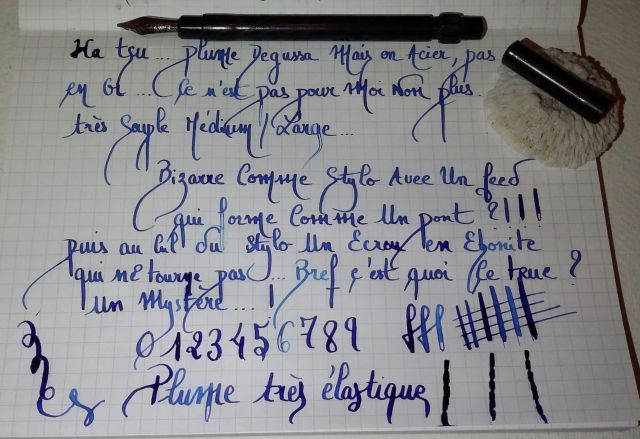 Ha tsu... plume Degussa Mais en Acier, pas
en Or... Ce n'est pas pour Moi Non plus.
très Souple Médium / Large...
Bizarre Comme Stylo Avec Un feed
qui forme Comme Un pont ?!!!
puis au Cul du Stylo Un Ecrou en Ebonite
qui ne tourne pas... Bref c'est quoi ce truc ?
un Mystère.... !
0123456789 fff
Plume très élastique